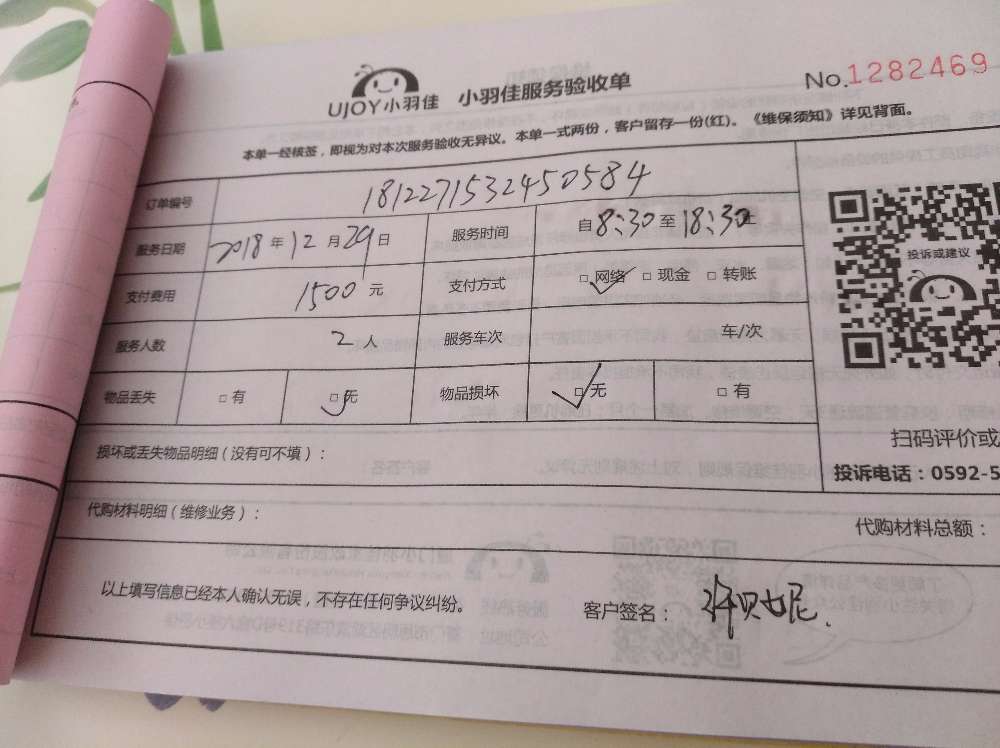 UJOY小羽佳 小羽佳服务验收单 No.1282469
本单一经核签，即视为对本次服务验收无异议。本单一式两份，客户留存一份(红)。《维保须知》详见背面。
订单编号 181227153245 0584
服务日期 2018年12月29日 服务时间 自8:30至18:30止
支付费用 1500元 支付方式 □网络 □现金 □转账
服务人数 2人 服务车次 车/次
物品丢失 □有 □无 物品损坏 □无 □有
投诉或建议
扫码评价或
损坏或丢失物品明细（没有可不填）：
投诉电话：0592-5
代购材料明细（维修业务）：
代购材料总额：
以上填写信息已经本人确认无误，不存在任何争议纠纷。
客户签名：许贝妮.